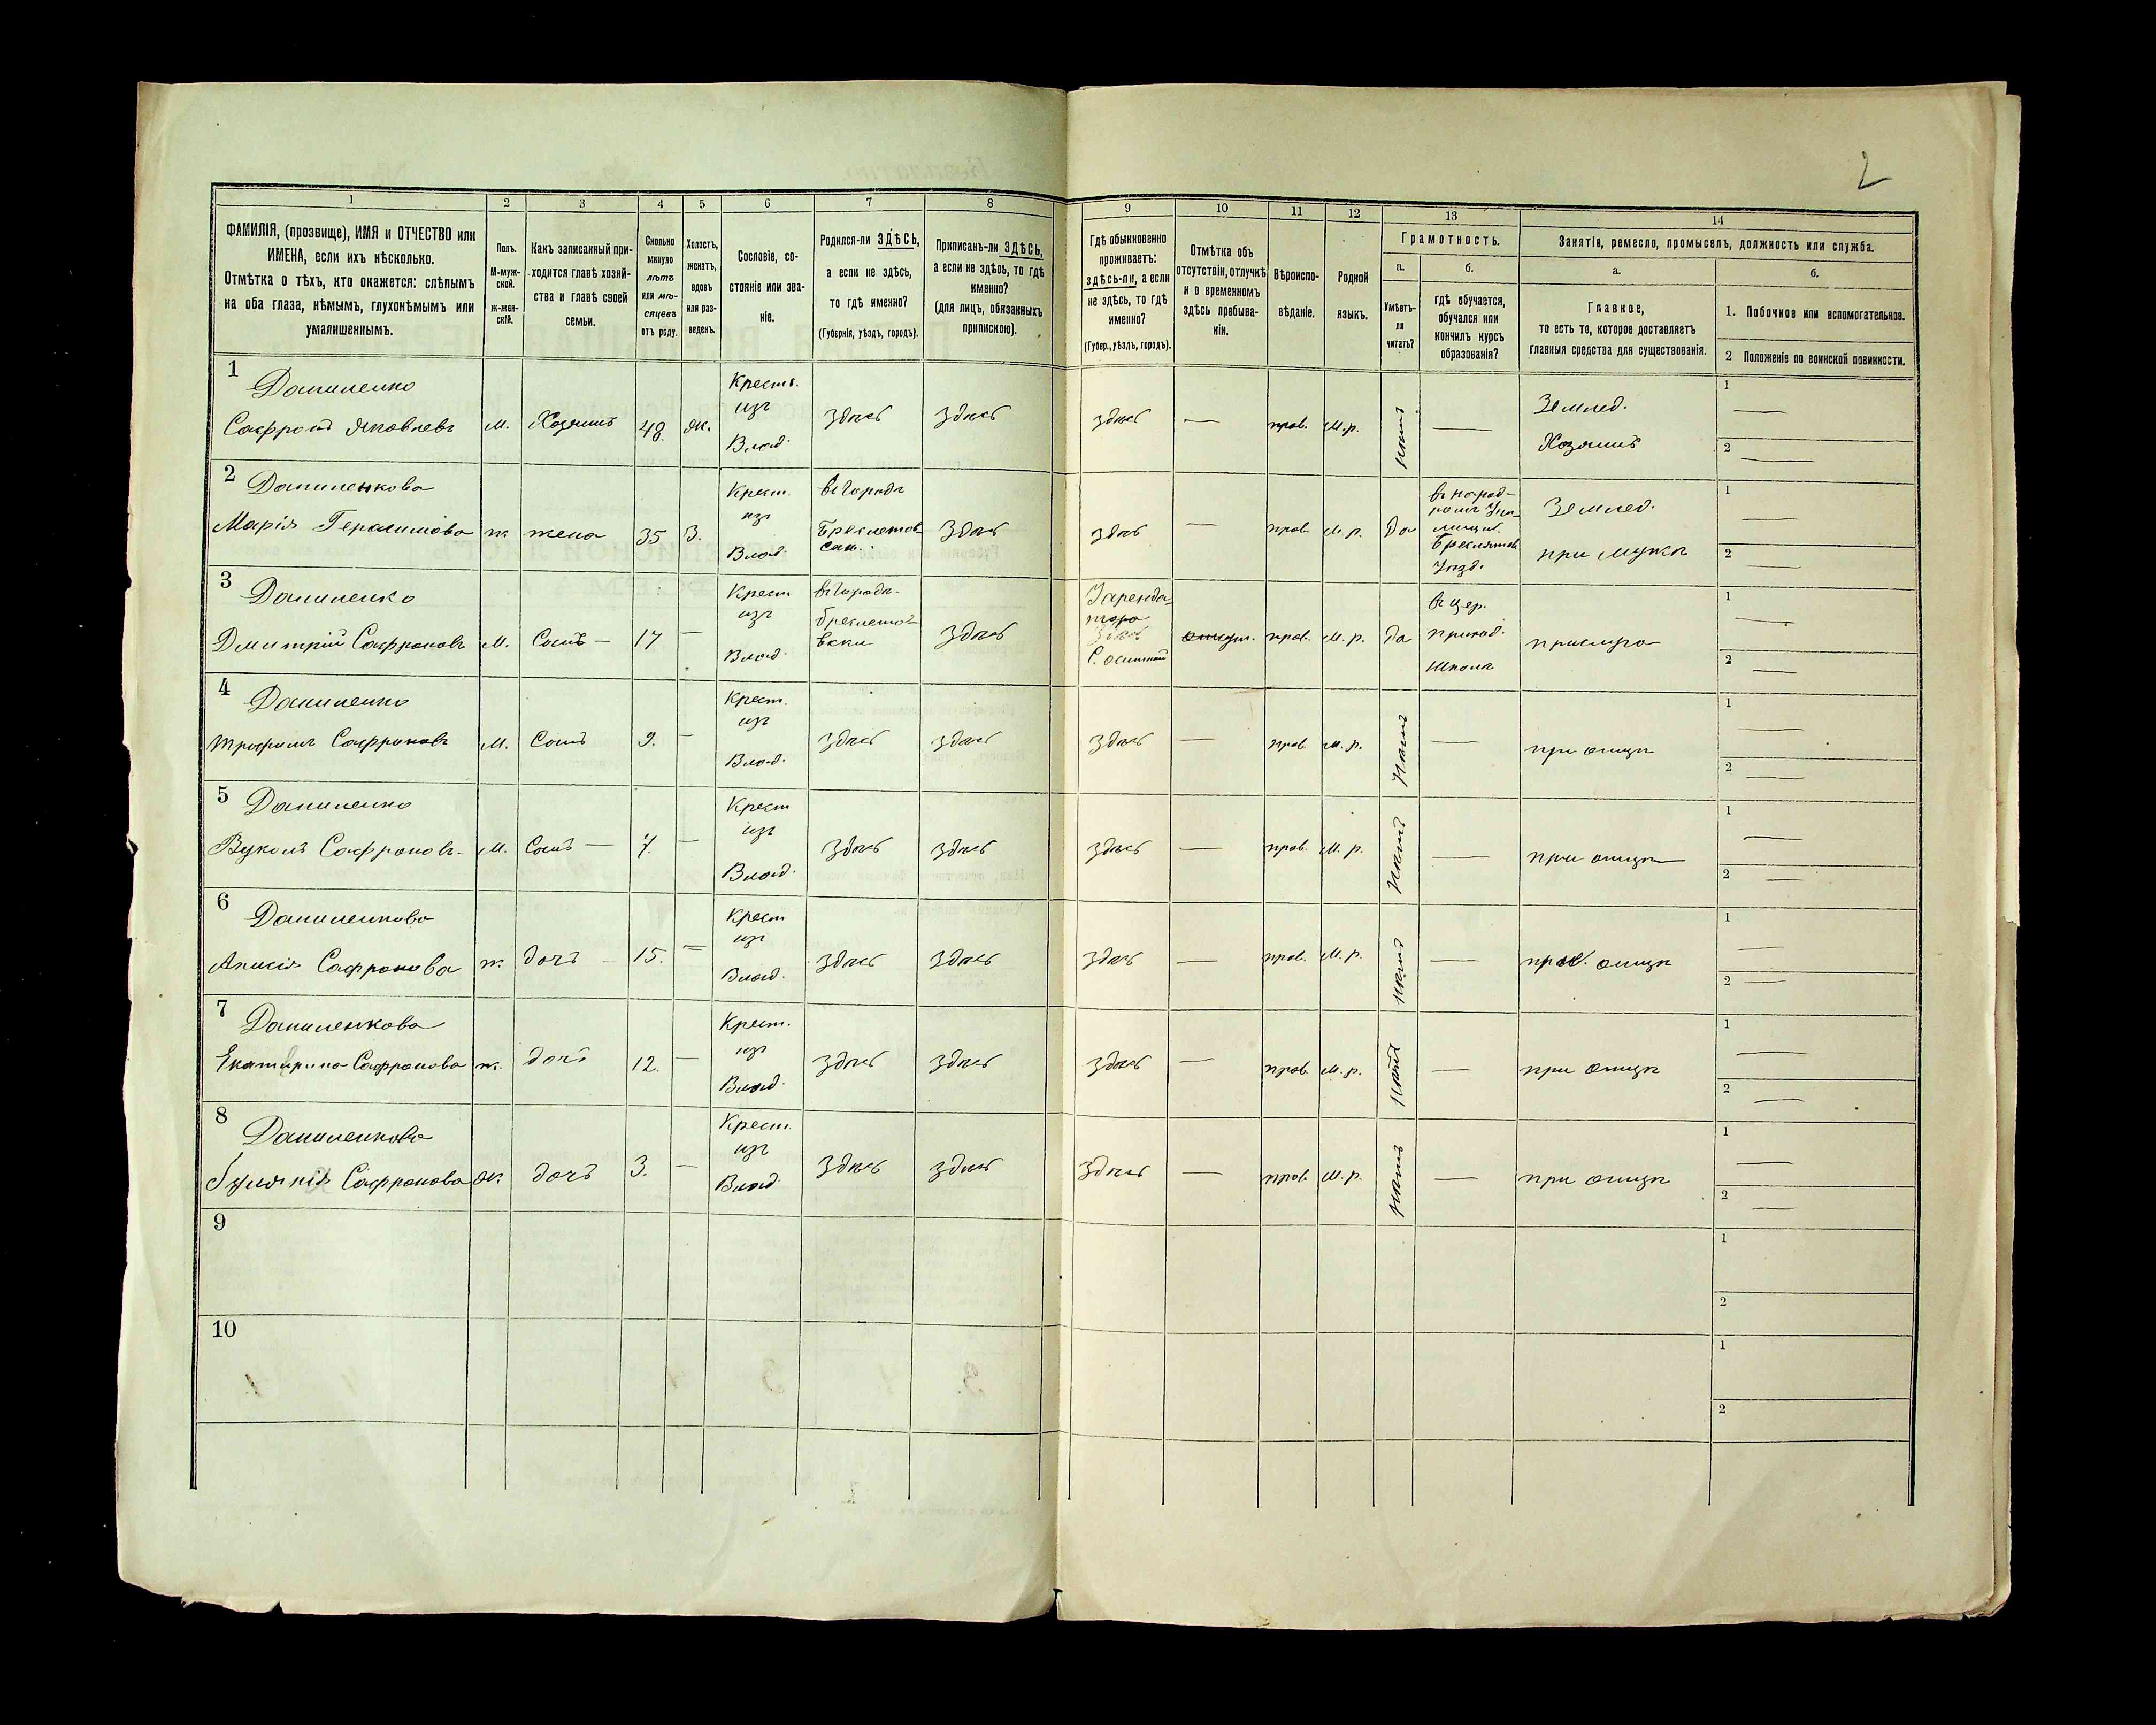 2
1
2
3
4
5
6
7
8
9
10
11
12
13
14
ФАМИЛІЯ, (прозвище), ИМЯ и ОТЧЕСТВО или
ИМЕНА, если ихъ нѣсколько.
Отмѣтка о тѣхъ, кто окажется: слѣпымъ
на оба глаза, нѣмымъ, глухонѣмымъ или
умалишеннымъ.
Полъ.
М-муж-
ской.
ж-жен-
скій.
Какъ записанный при-
ходится главѣ хозяй-
ства и главѣ своей
семьи.
Сколько
минуло
лѣтъ
или мѣ-
сяцевъ
отъ роду.
Холостъ,
женатъ,
вдовъ
или раз-
веденъ.
Сословіе, со-
стояніе или зва-
ніе.
Родился-ли ЗДѢСЬ,
а если не здѣсь,
то гдѣ именно?
(Губернія, уѣздъ, городъ).
Приписанъ-ли ЗДѢСЬ,
а если не здѣсь, то гдѣ
именно?
(для лицъ, обязанныхъ
припискою).
Гдѣ обыкновенно
проживаетъ:
здѣсь-ли, а если
не здѣсь, то гдѣ
именно?
(Губер., уѣздъ, городъ).
Отмѣтка объ
отсутствіи, отлучкѣ
и о временномъ
здѣсь пребыва-
ніи.
Вѣроиспо-
вѣданіе.
Родной
языкъ.
Грамотность.
а.
Умѣетъ-
ли
читать?
б.
гдѣ обучается,
обучался или
кончилъ курсъ
образованія?
Занятія, ремесло, промыселъ, должность или служба.
а.
Главное,
то есть то, которое доставляетъ
главныя средства для существованія.
б.
1. Побочное или вспомогательное.
2 Положеніе по воинской повинности.
1
Даниленко
Сафронъ Яковлевъ
М.
Хозяинъ
48.
Ж.
Крестъ.
изъ
Влад.
Здѣсь
Здѣсь
здѣсь
—
прав.
М.р.
нѣтъ
—
Землед.
Хозяинъ
1 —
2 —
2
Даниленкова
Марія Герасимова
ж
жена
35
З.
Крест.
изъ
Влад.
въ городѣ
Здѣсь
здѣсь
—
прав.
М.р.
Да
въ народ-
Землед.
при мужѣ
1 —
2 —
3
Даниленко
Дмитрій Сафроновъ
М.
Сынъ —
17
—
Крест.
изъ
Влад.
въ городѣ
Здѣсь
прав.
М.р.
да
въ цер.
приход.
школѣ
прислуга
1 —
2 —
4
Даниленко
Трофимъ Сафроновъ
М.
Сынъ
9.
—
Крест.
изъ
Влад.
здѣсь
здѣсь
Здѣсь
—
прав.
М.р.
Нѣтъ
—
при отцѣ
1 —
2 —
5
Даниленко
Вуколъ Сафроновъ.
М.
Сынъ —
7.
—
Крест
изъ
Влад.
здѣсь
здѣсь
здѣсь
—
прав.
М.р.
Нѣтъ
—
при отцѣ
1 —
2 —
6
Даниленкова
Анисія Сафронова
ж.
дочь
15.
—
Крест
изъ
Влад.
здѣсь
здѣсь
здѣсь
—
прав.
М.р.
нѣтъ
—
при отцѣ
1 —
2 —
7
Даниленкова
Екатерина Сафронова
ж.
дочь
12.
—
Крест.
изъ
Влад.
здѣсь
здѣсь
здѣсь
—
прав.
М.р.
нѣтъ
—
при отцѣ
1 —
2 —
8
Даниленкова
Сафронова
ж.
дочь
3.
—
Крест.
изъ
Влад
здѣсь
здѣсь
здѣсь
—
прав.
М.р.
нѣтъ
—
при отцѣ
1 —
2 —
9
1
2
10
1
2